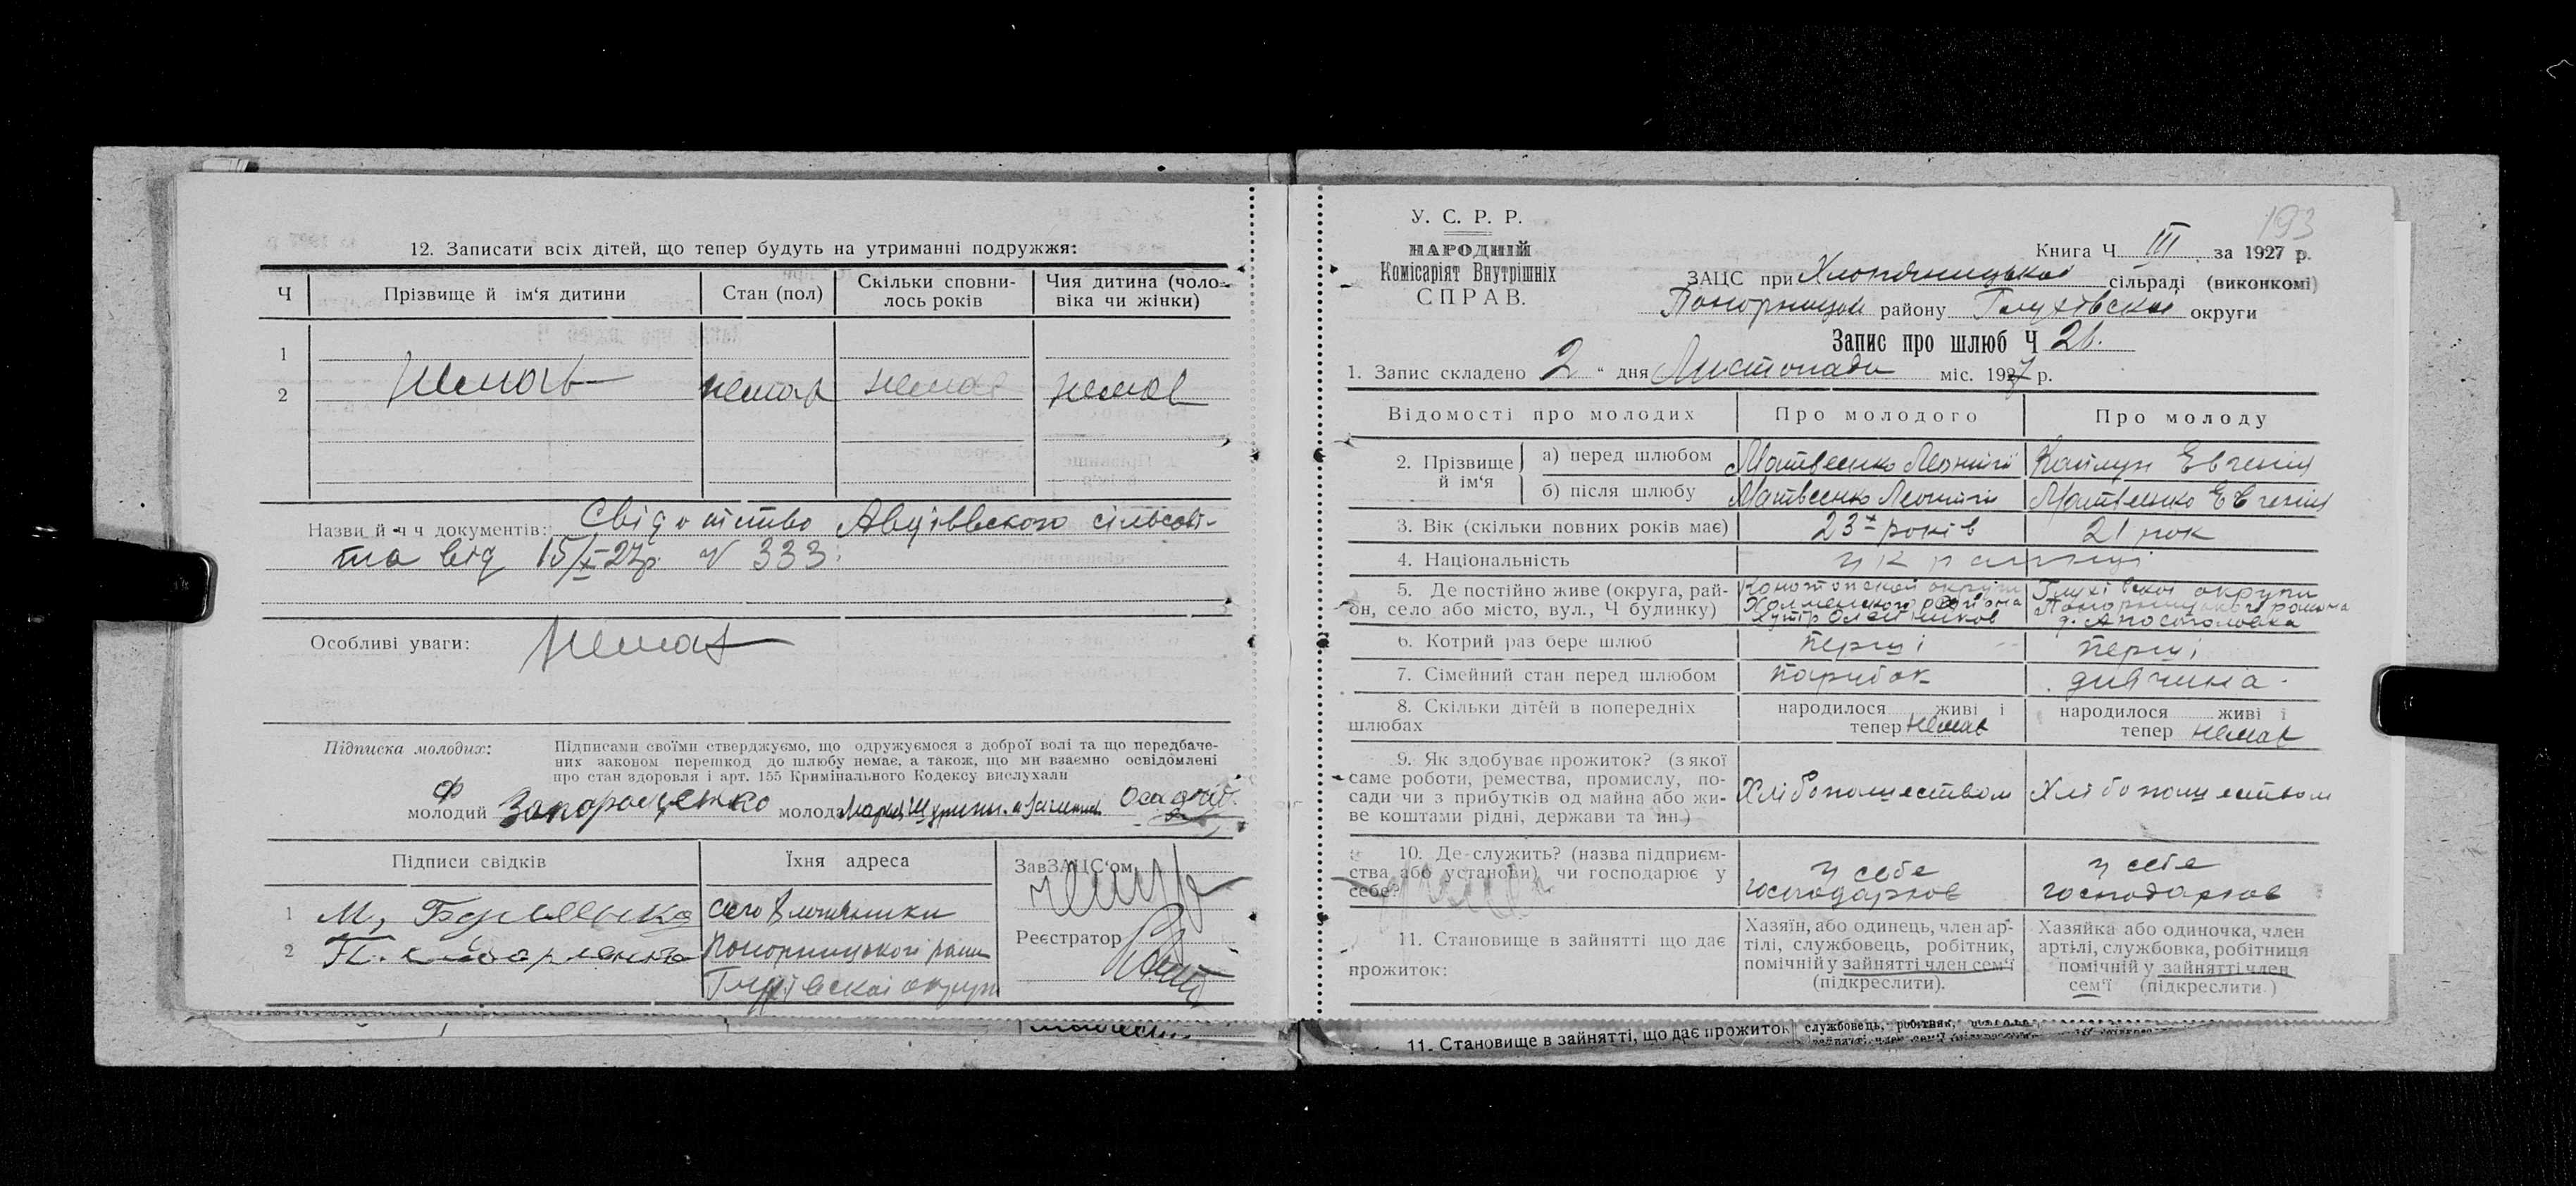 12. Записати всіх дітей, що тепер будуть на утриманні подружжя:
Ч Прізвище й ім'я дитини Стан (пол) Скільки сповни-лось років Чия дитина (чоло-віка чи жінки)
1
2 Немає немає немає немає
Назви й ч ч документів: Свідотство Авдіївського сільсові-
та від 15/X-27р. N 333.
Особливі уваги: Немає
Підписка молодих: Підписами своїми стверджуємо, що одружуємося з доброї волі та що передбаче-
них законом перешкод до шлюбу немає, а також, що ми взаємно освідомлені
про стан здоров'я і арт. 155 Кримінального Кодексу вислухали
молодий Ф Запорощенко молода
Підписи свідків Їхня адреса ЗавЗАЦС'ом
1 М. село
2 П. Понорницького
Реєстратор
Глухівскої округи
193
У. С. Р. Р.
НАРОДНІЙ
Комісаріят Внутрішніх
СПРАВ.
Книга Ч III за 1927 р.
ЗАЦС при Хлопяницької сільраді (виконкомі)
Понорницьк району Глухівскої округи
Запис про шлюб Ч 26.
1. Запис складено 2 " дня Листопада міс. 1927 р.
Відомості про молодих Про молодого Про молоду
2. Прізвище й ім'я
а) перед шлюбом Матвеенко Леонтій Евгенія
б) після шлюбу Матвеенко Леонтій Матвеенко Евгенія
3. Вік (скільки повних років має) 23 років 21 рок
4. Національність українці
5. Де постійно живе (округа, рай-
он, село або місто, вул., Ч будинку)
Конотопської округи Холменского района Хутір Олейників
Глухівскої округи Понорницького района
6. Котрий раз бере шлюб перші перші
7. Сімейний стан перед шлюбом парубок дивчина
8. Скільки дітей в попередніх
шлюбах
народилося живі і тепер немає
народилося живі і тепер немає
9. Як здобуває прожиток? (з якої
саме роботи, ремества, промислу, по-
сади чи з прибутків од майна або жи-
ве коштами рідні, держави та ин.)
Хлібопашеством Хлібопашеством
10. Де служить? (назва підприєм-
ства або установи) чи господарює у
себе?
у себе господарює
у себе господарює
11. Становище в зайнятті що дає
прожиток:
Хазяїн, або одинець, член ар-
тілі, службовець, робітник,
помічній у зайнятті член сем'ї
(підкреслити).
Хазяйка або одиночка, член
артілі, службовка, робітниця
помічній у зайнятті член
сем'ї (підкреслити.)
11. Становище в зайнятті, що дає прожиток службовець, робітник,